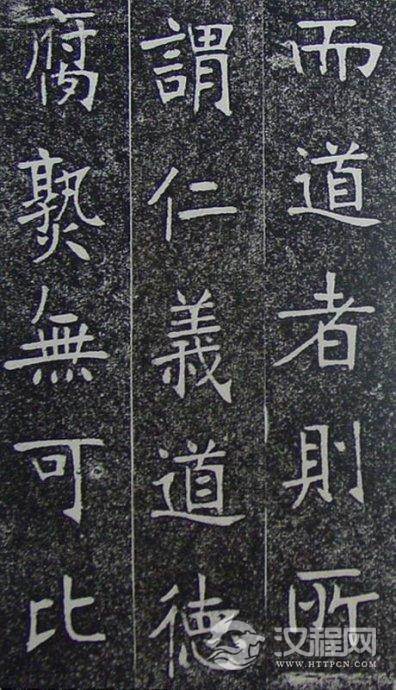 而道者則所
謂仁義道德
腐熟無可比
汉程网
WWW.HTTPCN.COM